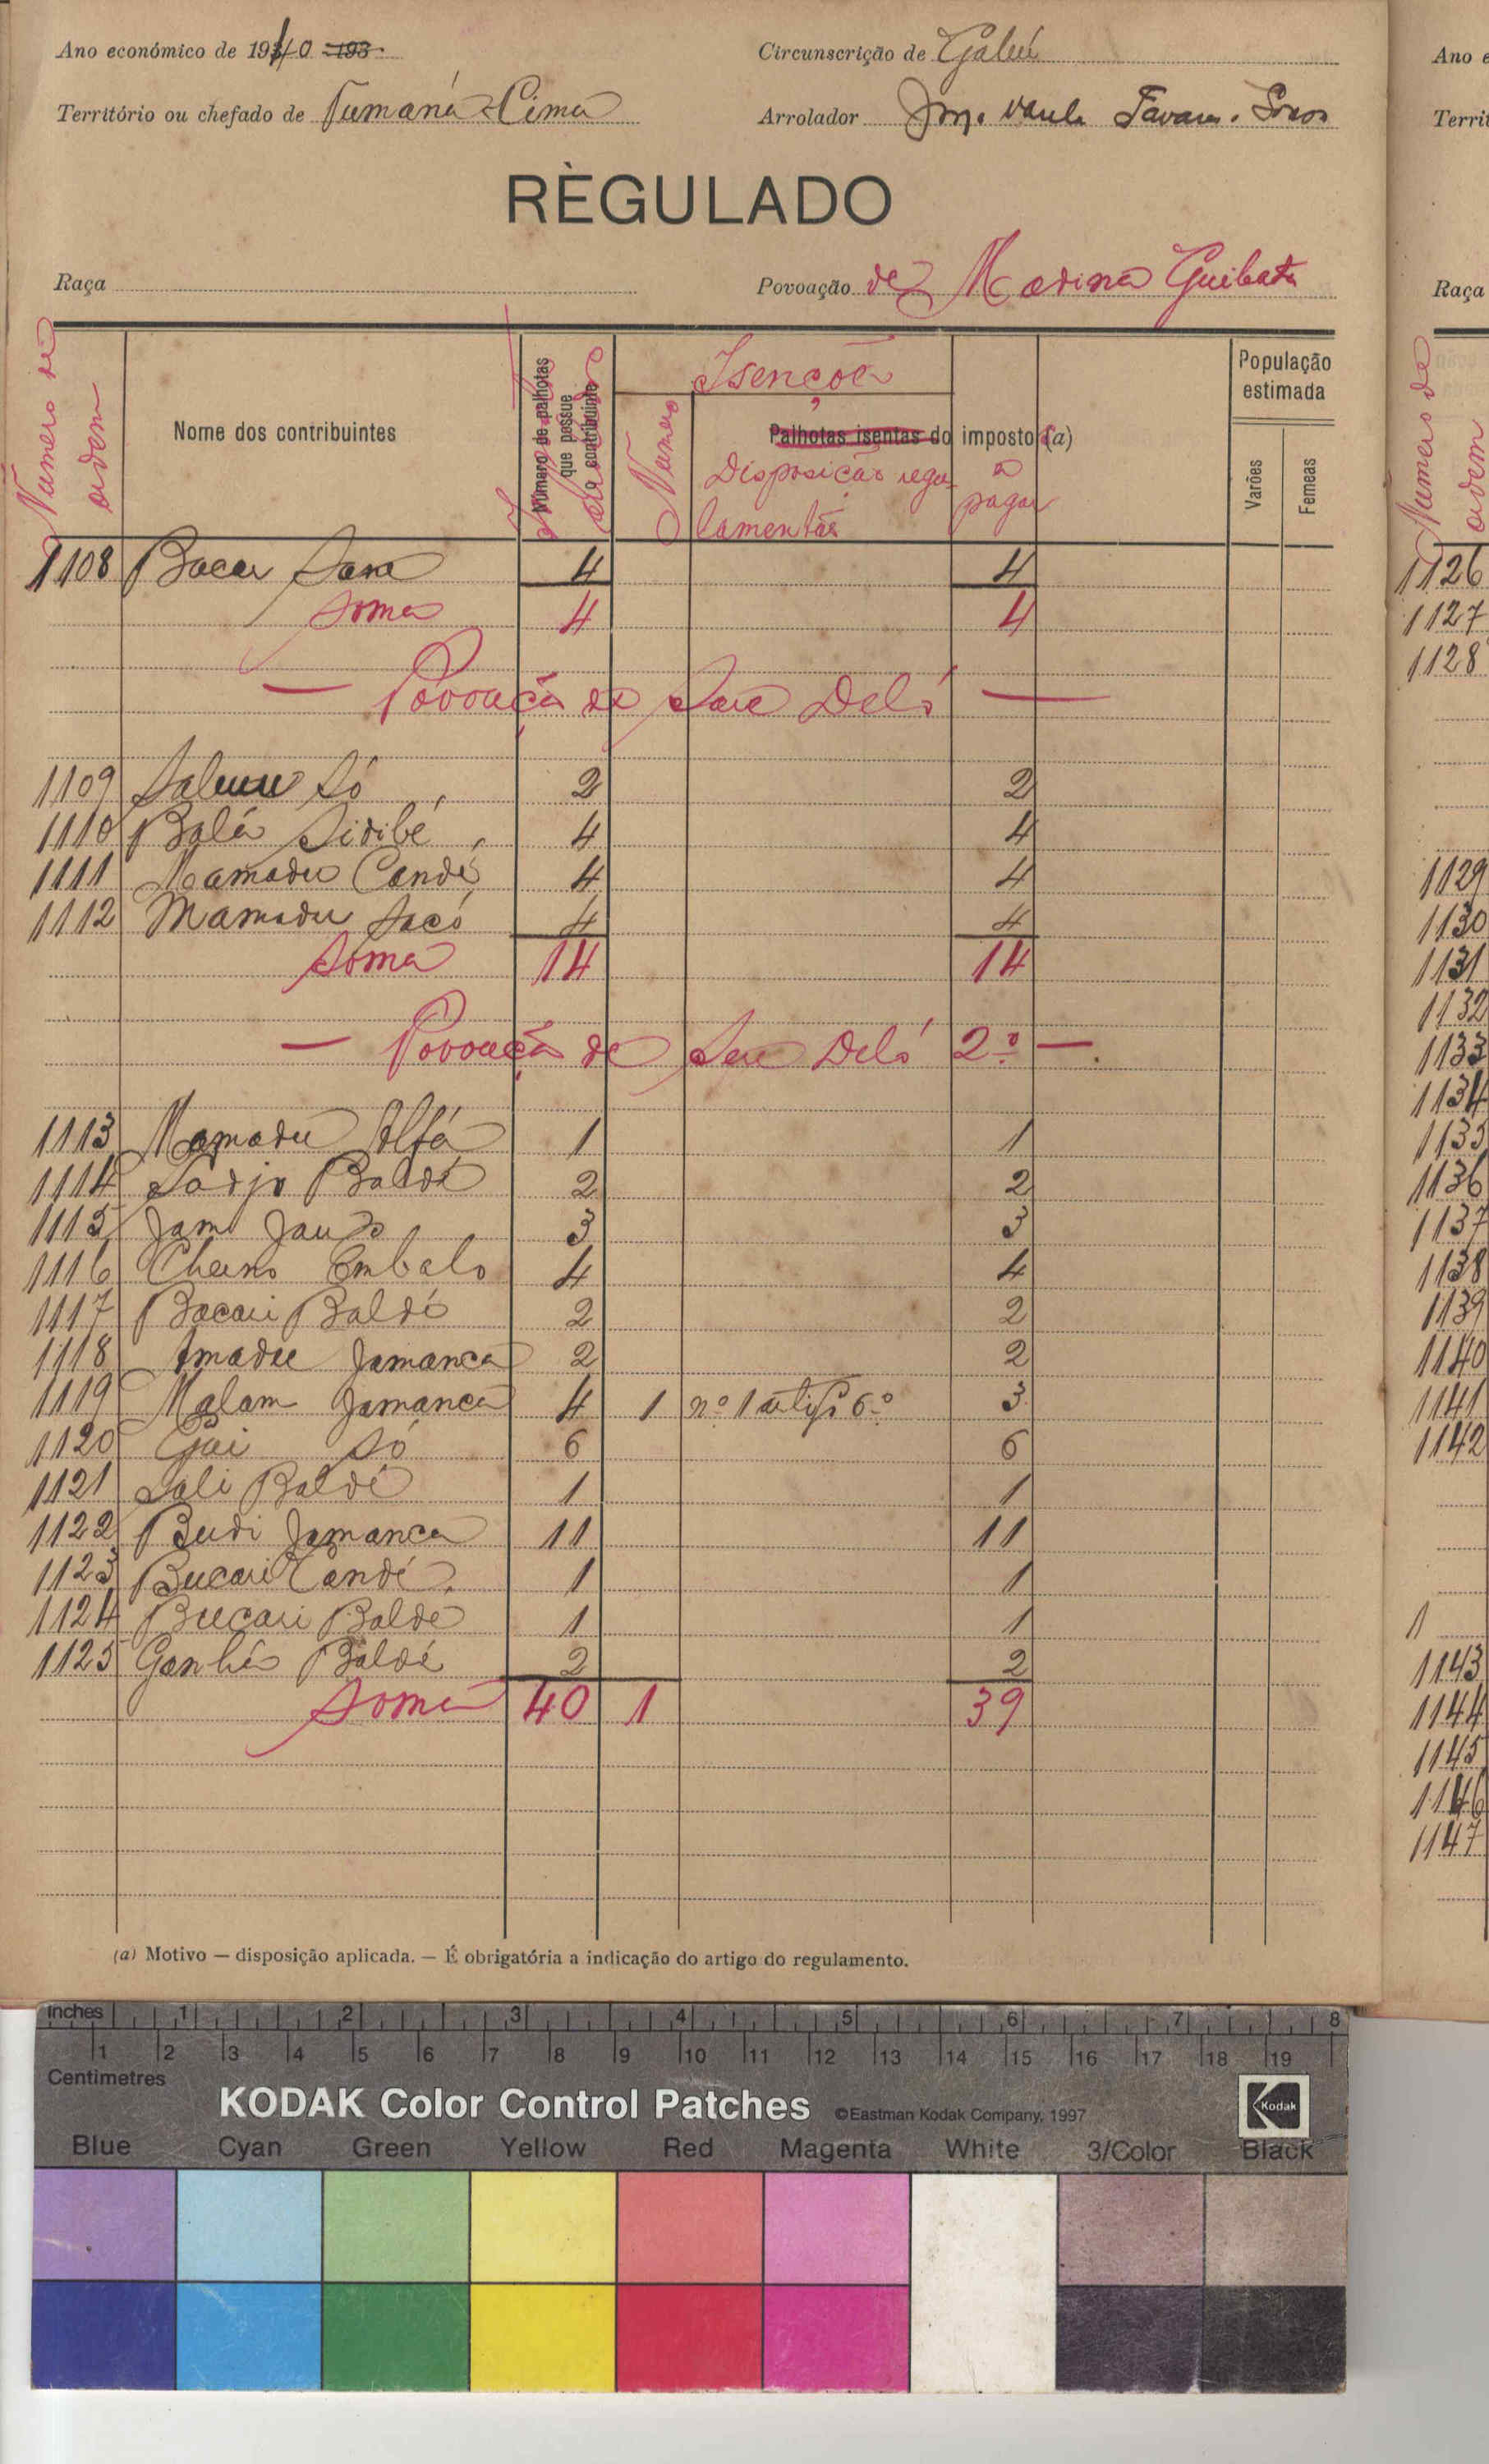 Ano económico de 1940 193
Circunscrição de Gabú
Território ou chefado de Tumaná Cima
Arrolador Tavares
RÈGULADO
Raça
Povoação de Madina Guibata
Número de ordem
Nome dos contribuintes
Número de palhotas que possue o contribuinte
Isenções
Número
Palhotas isentas do imposto (a)
Disposição regulamentar
a pagar
População estimada
Varões
Femeas
1108 Bacar Sana 4 4
Soma 4 4
— Povoação de Sare Deló —
1109 Saluu Só 2 2
1110 Balá Sidibé 4 4
1111 Mamadu Candé 4 4
1112 Mamadu Sacó 4 4
Soma 14 14
— Povoação de Sare Deló 2.º —
1113 Mamadu Alfá 1 1
1114 Sadjo Baldé 2 2
1115 Jam Jau 3 3
1116 Cherno Embalo 4 4
1117 Bacari Baldé 2 2
1118 Amadu Jamanca 2 2
1119 Malam Jamanca 4 1 nº 1 artigo 6.º 3
1120 Gai Só 6 6
1121 Sali Baldé 1 1
1122 Budi Jamanca 11 11
1123 Bucari Candé 1 1
1124 Bucari Balde 1 1
1125 Ganhé Baldé 2 2
Soma 40 1 39
(a) Motivo — disposição aplicada. — É obrigatória a indicação do artigo do regulamento.
Ano e
Territ
Raça
Número de ordem
1126
1127
1128
1129
1130
1131
1132
1133
1134
1135
1136
1137
1138
1139
1140
1141
1142
1
1143
1144
1145
1146
1147
inches 1 2 3 4 5 6 7 8
1 2 3 4 5 6 7 8 9 10 11 12 13 14 15 16 17 18 19
Centimetres
KODAK Color Control Patches ©Eastman Kodak Company, 1997 Kodak
Blue Cyan Green Yellow Red Magenta White 3/Color Black